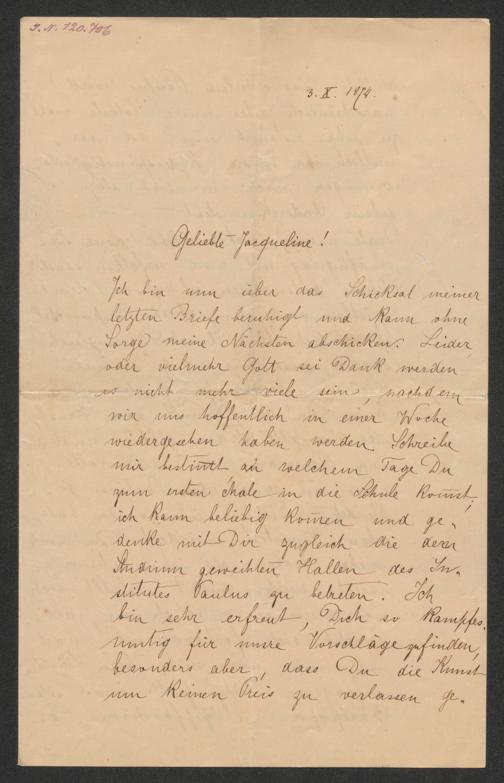 J. N. 120.706
3. X. 1874.
Geliebte Jacqueline!
Ich bin nun über das Schicksal meiner
letzten Briefe beruhigt und kann ohne
Sorge meine Nächsten abschicken. Leider,
oder vielmehr Gott sei Dank werden
es nicht mehr viele sein, nachdem
wir uns hoffentlich in einer Woche
wiedergesehen haben werden. Schreibe
mir bestimt an welchem Tage Du
zum ersten Male in die Schule komst;
ich kann beliebig komen und ge-
denke mit Dir zugleich die dem
Studium geweihten Hallen des In-
stitutes Paulus zu betreten. Ich
bin sehr erfreut, Dich so kampfes-
mutig für unsre Vorschläge zu finden,
besonders aber, dass Du die Kunst
um keinen Preis zu verlassen ge-